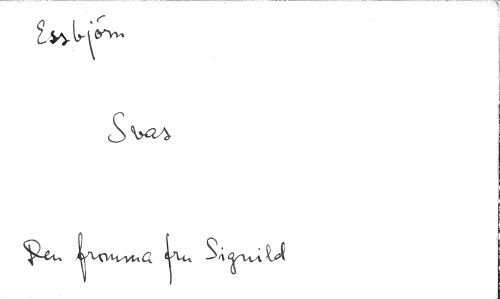 Essbjörn
Svas
Den fromma fru Signild